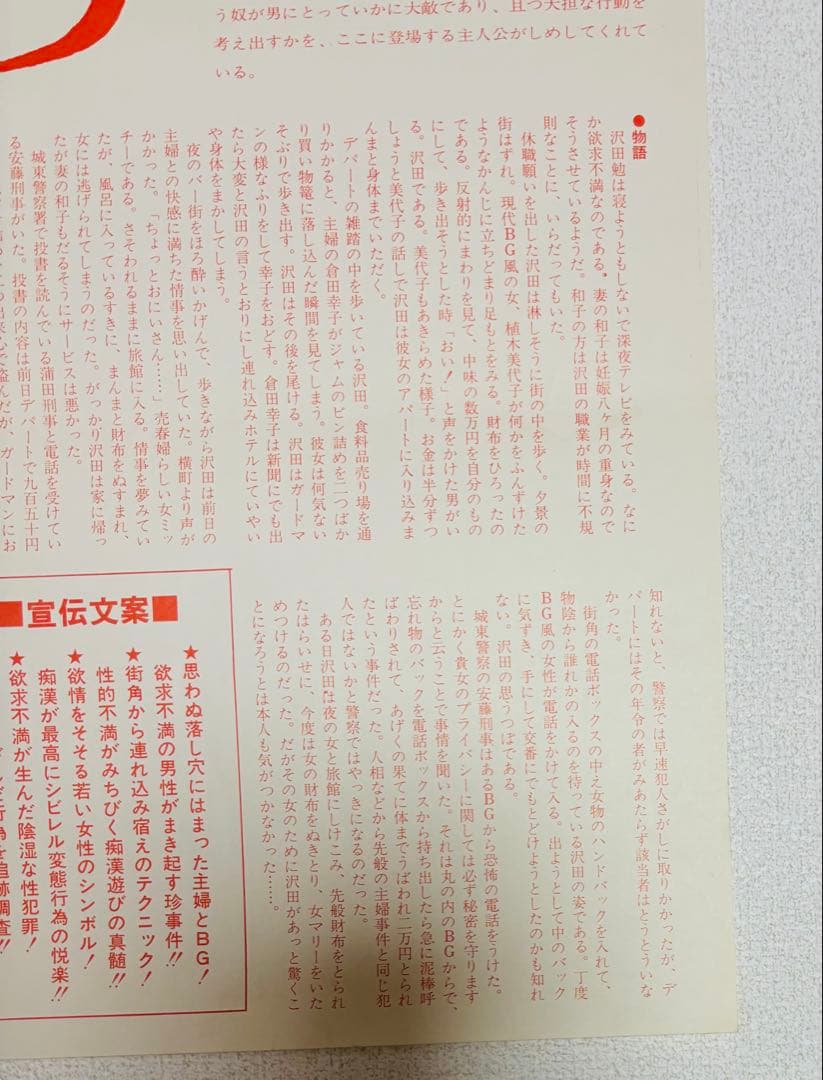 う奴が男にとっていかに大敵であり、且つ大担な行動を
考え出すかを、ここに登場する主人公がしめしてくれて
いる。
●物語
沢田勉は寝ようともしないで深夜テレビをみている。なに
か欲求不満なのである。妻の和子は妊娠八ケ月の重身なので
そうさせているようだ。和子の方は沢田の職業が時間に不規
則なことに、いらだってもいた。
休職願いを出した沢田は淋しそうに街の中を歩く。夕景の
街はずれ。現代BG風の女、植木美代子が何かをふんずけた
ようなかんじに立ちどまり足もとをみる。財布をひろったの
である。反射的にまわりを見て、中味の数万円を自分のもの
にして、歩き出そうとした時「おい！」と声をかけた男がい
る。沢田である。美代子もあきらめた様子。お金は半分ずつ
しようと美代子の話しで沢田は彼女のアパートに入り込みま
んまと身体までいただく。
デパートの雑踏の中を歩いている沢田。食料品売り場を通
りかかると、主婦の倉田幸子がジャムのビン詰めを二つばか
り買い物篭に落し込んだ瞬間を見てしまう。彼女は何気ない
そぶりで歩き出す。沢田はその後を尾ける。沢田はガードマ
ンの様なふりをして幸子をおどす。倉田幸子は新聞にでも出
たら大変と沢田の言うとおりにし連れ込みホテルにていやい
や身体をまかしてしまう。
夜のバー街をほろ酔いかげんで、歩きながら沢田は前日の
主婦との快感に満ちた情事を思い出していた。横町より声が
かかった。「ちょっとおにいさん……」売春婦らしい女ミッ
チーである。さそわれるままに旅館に入る。情事を夢みてい
たが、風呂に入っているすきに、まんまと財布をぬすまれ、
女には逃げられてしまうのだった。がっかり沢田は家に帰っ
たが妻の和子もだるそうにサービスは悪かった。
城東警察署で投書を読んでいる蒲田刑事と電話を受けてい
る安藤刑事がいた。投書の内容は前日デパートで九百五十円
出来心で盗んだが、ガードマンにお
知れないと、警察では早速犯人さがしに取りかかったが、デ
パートにはその年令の者がみあたらず該当者はとうとういな
かった。
街角の電話ボックスの中え女物のハンドバックを入れて、
物陰から誰れかの入るのを待っている沢田の姿である。丁度
BG風の女性が電話をかけて入る。出ようとして中のバック
に気ずき、手にして交番にでもとどけようとしたのかも知れ
ない。沢田の思うつぼである。
城東警察の安藤刑事はあるBGから恐怖の電話をうけた。
とにかく貴女のプライバシーに関しては必ず秘密を守ります
からと云うことで事情を聞いた。それは丸の内のBGからで、
忘れ物のバックを電話ボックスから持ち出したら急に泥棒呼
ばわりされて、あげくの果てに体までうばわれ二万円とられ
たという事件だった。人相などから先般の主婦事件と同じ犯
人ではないかと警察ではやっきになるのだった。
ある日沢田は夜の女と旅館にしけこみ、先般財布をとられ
たはらいせに、今度は女の財布をぬきとり、女マリーをいた
めつけるのだった。だがその女のために沢田があっと驚くこ
とになろうとは本人も気がつかなかった……。
■宣伝文案■
★思わぬ落し穴にはまった主婦とBG！
欲求不満の男性がまき起す珍事件!!
★街角から連れ込み宿えのテクニック！
性的不満がみちびく痴漢遊びの真髄!!
★欲情をそそる若い女性のシンボル！
痴漢が最高にシビレル変態行為の悦楽!!
★欲求不満が生んだ陰湿な性犯罪！
行為を追跡調査!!